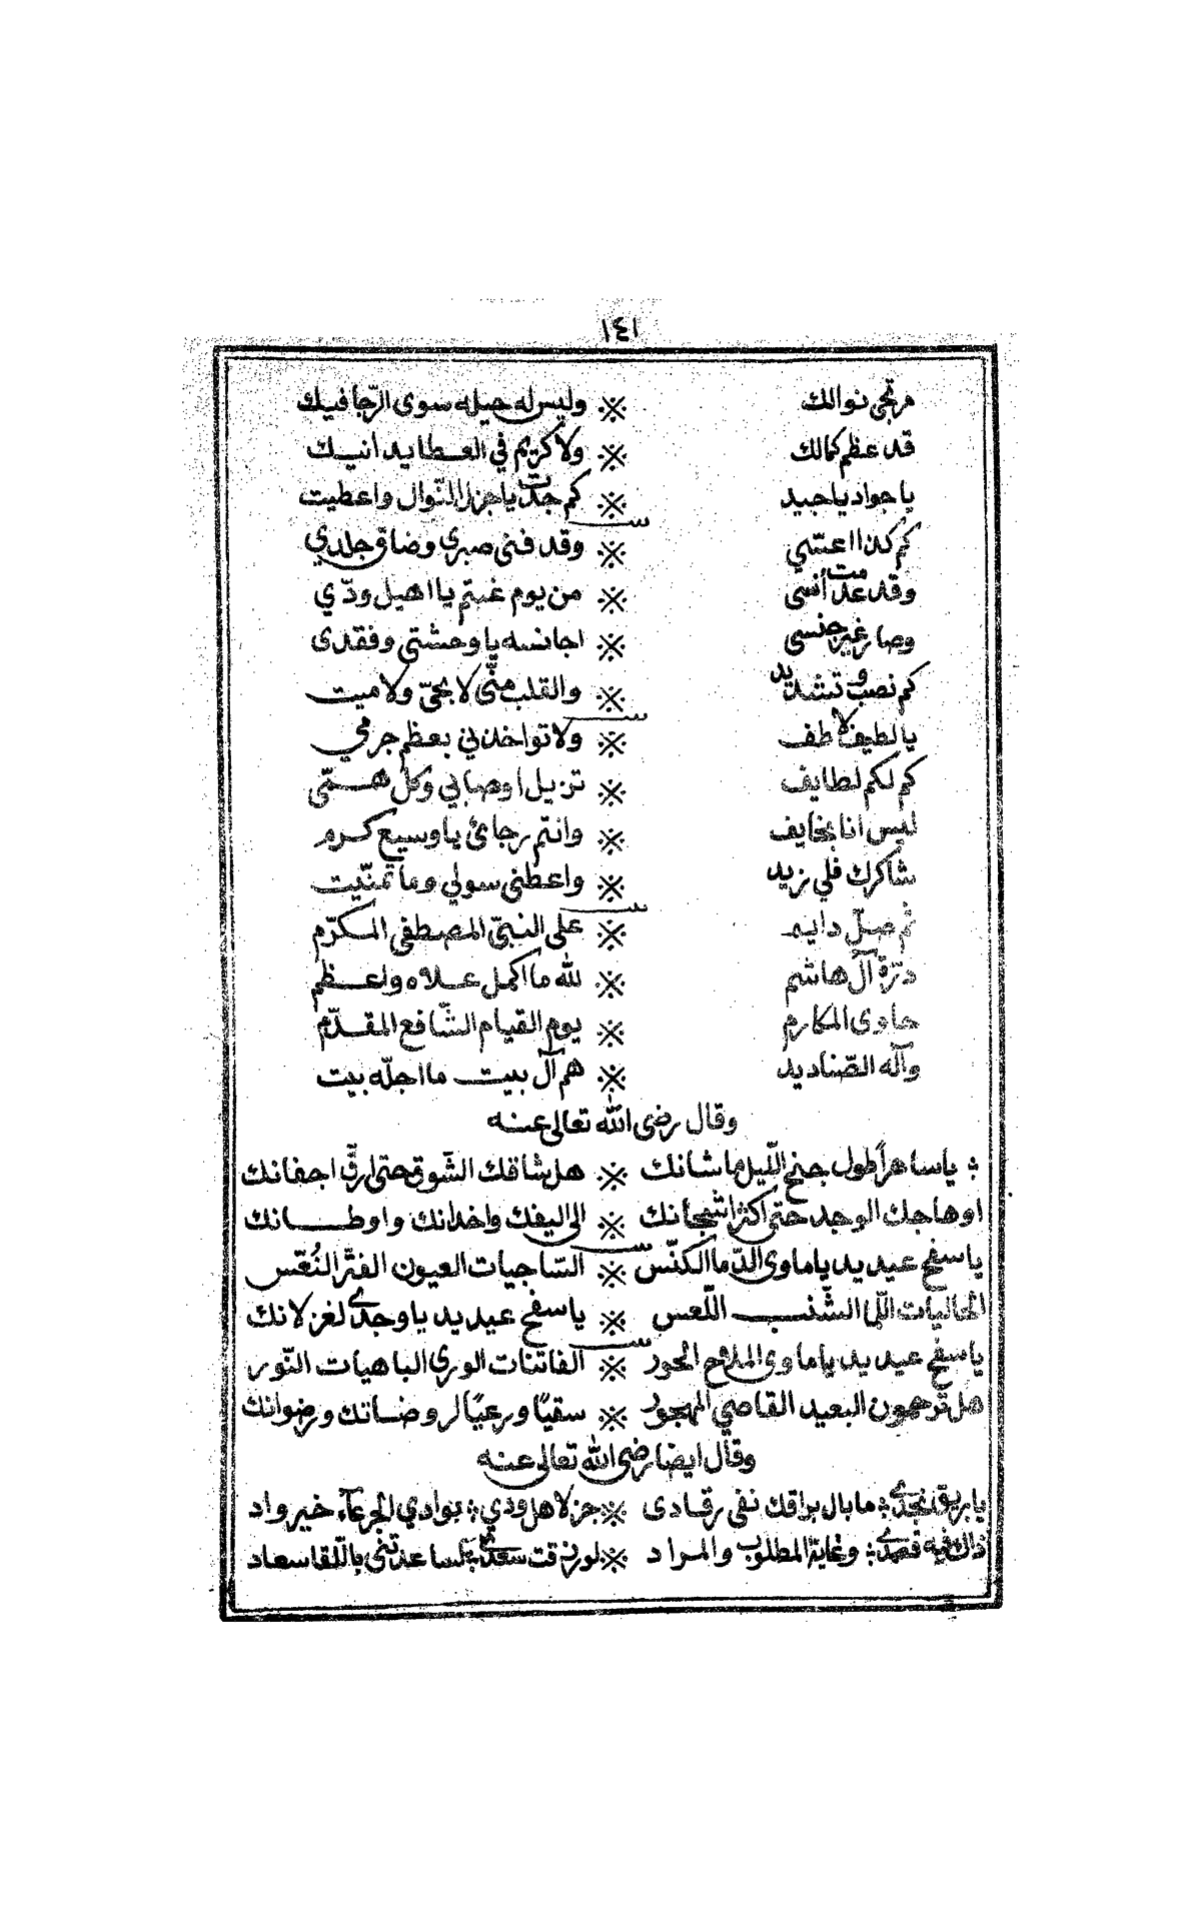 ١٤١
مرتجي نوالك ※ وليس له حيله سوى الرّجا فيك
قد عظم كمالك ※ ولا كريم في العطا يدانيك
يا جواد يا جيد ※ كم جدت يا جزل النّوال واعطيت
كم كذا اعسّي ※ وقد فنى صبري وضاق جلدي
وقد عدمت أنسى ※ من يوم غبتم يا اهيل ودّي
وصار غير جنسي ※ اجانسه يا وحشتي وفقدى
كم نصب وتشديد ※ والقلب منّى لا بحيّ ولا ميت
يا لطيف لاطف ※ ولا تواخذني بعظم جرمي
كم لكم لطايف ※ تزيل اوصابي وكل همّى
ليس انا بخايف ※ وانتم رجائ يا وسيع كرم
شاكرك فلي زيد ※ واعطني سولي وما تمنّيت
ثم صلّ دايم ※ على النبيّ المصطفى المكرّم
درّة آل هاشم ※ لله ما اكمل علاه واعظم
حاوى المكارم ※ يوم القيام الشّافع المقدّم
وآله الصّناديد ※ هم آل بيت ما اجلّه بيت
وقال رضى الله تعالى عنه
يا ساهراً طول جنح اللّيل ما شانك ※ هل شاقك الشّوق حتى ارّق اجفانك
او هاجك الوجد حتى اكثر اشجانك ※ الى اليفك واخدانك واوطانك
يا سفح عيديد يا ماوى الدّما الكنّس ※ السّاجيات العيون الفتّر النُّعّس
الحاليات اللّما الشّنب اللّعس ※ يا سفح عيديد يا وجدي لغزلانك
يا سفح عيديد يا ماوى الملاح الحور ※ الفاتنات الورى الباهيات النّور
هل ترحمون البعيد القاصي المهجور ※ سقيًا ورعيًا لروضاتك ورضوانك
وقال ايضا رضى الله تعالى عنه
يا بريق نجدي ؛ ما بال براقك نفى رقادى ※ جز لاهل ودي ؛ بوادي الجرعآء خير واد
ذاك فيه قصدي ؛ وغاية المطلوب والمراد ※ لو رزقت سعدي ؛ لساعدتني باللّقا سعاد